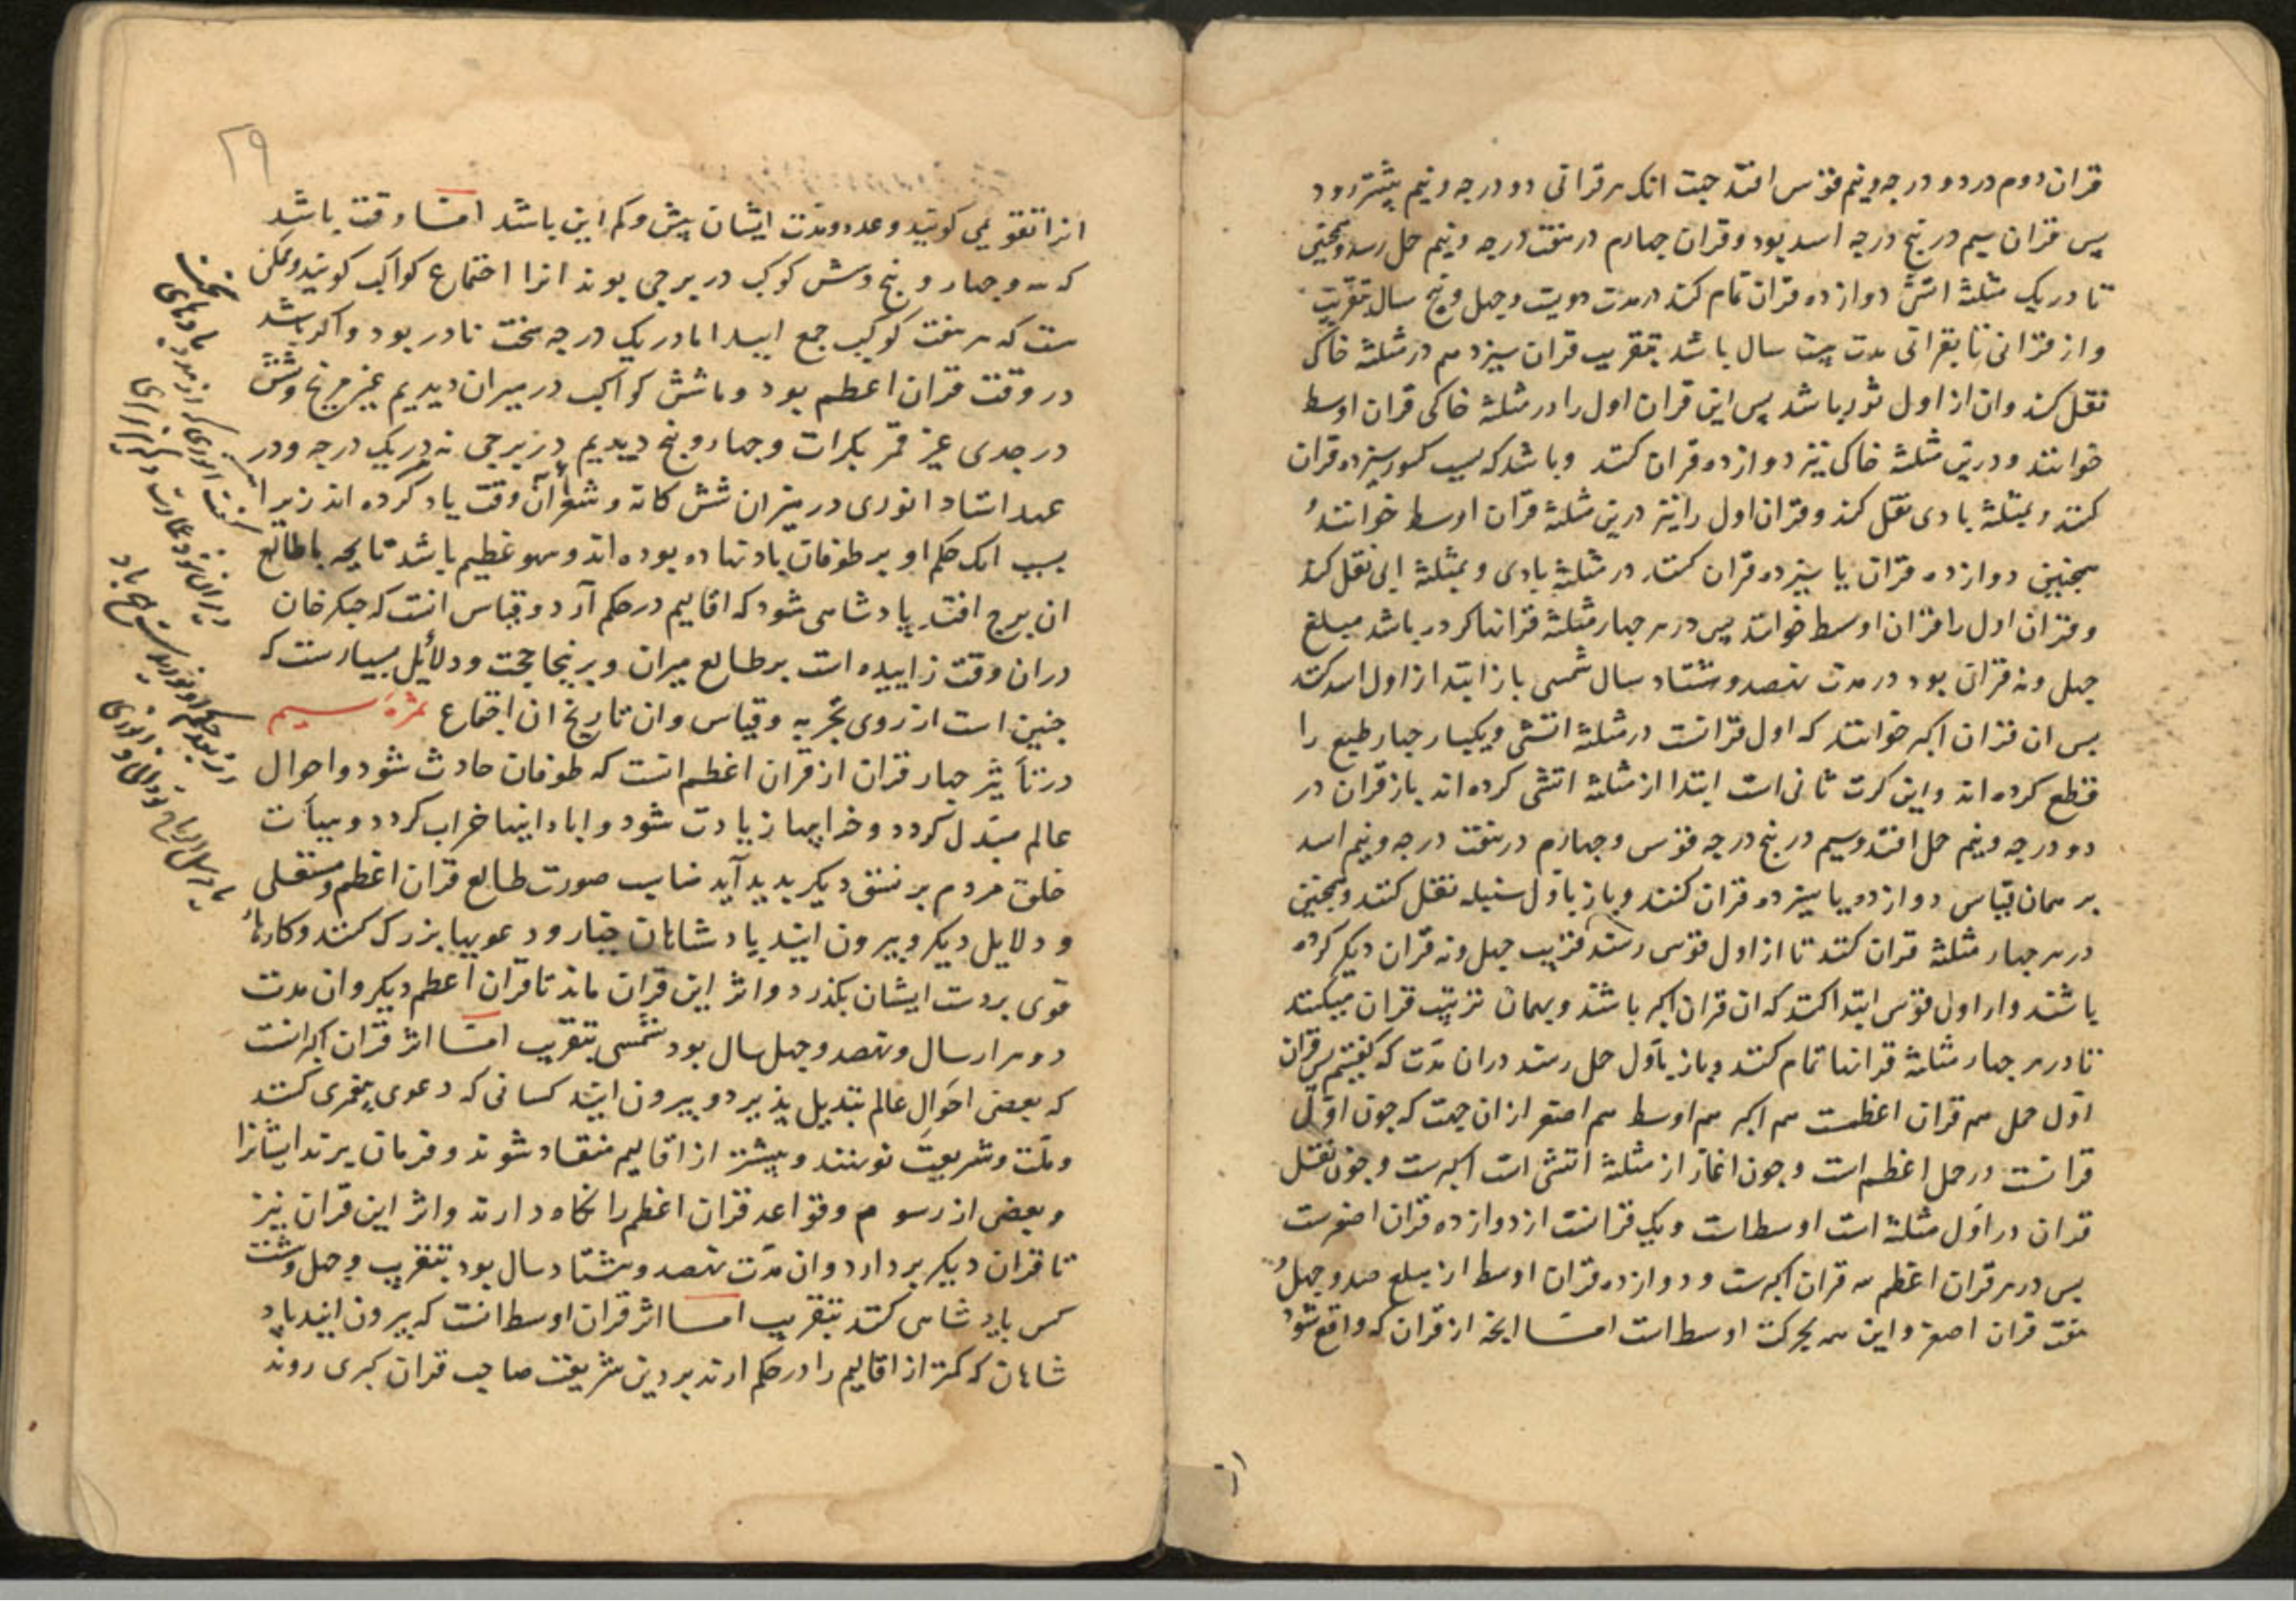 قران دوم در دو درجه و نیم قوس افتد جهت انک هر قرانی دو درجه و نیم پیشتر رود
پس قران سیم در پنج درجه اسد بود و قران جهارم در هفت درجه و نیم حمل رسد و همجنین
تا در یک مثلثهٔ اتشی دوازده قران تمام کند در مدت دویست و جهل و پنج سال بتقریب
و از قرانی تا بقرانی مدت بیست سال باشد بتقریب قران سیزدهم در مثلثهٔ خاکی
نقل کند وان از اول ثور باشد پس این قران اول را در مثلثهٔ خاکی قران اوسط
خوانند و درین مثلثهٔ خاکی نیز دوازده قران کنند و باشد که بسبب کسور سیزده قران
کنند و بمثلثهٔ بادی نقل کند و قران اول را نیز درین مثلثهٔ قران اوسط خوانند و
همجنین دوازده قران یا سیزده قران کنند در مثلثهٔ بادی و بمثلثهٔ ابی نقل کند
و قران اول را قران اوسط خوانند پس در هر جهار مثلثهٔ قرانها کرده باشد مبلغ
جهل و نه قران بود در مدت نهصد و هشتاد سال شمسی باز ابتدا از اول اسد کنند
پس ان قران اکبر خوانند که اول قرانست در مثلثهٔ اتشی و یکبار جهار طبع را
قطع کرده اند و این کرت ثانی است ابتدا از مثلثهٔ اتشی کرده اند باز قران در
دو درجه و نیم حمل افتد و سیم در پنج درجه قوس و جهارم در هفت درجه و نیم اسد
بر همان قیاس دوازده یا سیزده قران کنند و باز باول سنبله نقل کنند و همجنین
در هر جهار مثلثهٔ قران کنند تا از اول قوس رسند قریب جهل و نه قران دیکر کرده
باشند واز اول قوس ابتدا کنند که ان قران اکبر باشد و بهمان ترتیب قران میکنند
تا در هر جهار مثلثهٔ قرانها تمام کنند و باز باول حمل رسند دران مدت که کفتیم پس قران
اول حمل هم قران اعظمست هم اکبر هم اوسط هم اصغر ازان جهت که جون اول
قرانست در حمل اعظم است و جون اغاز از مثلثهٔ اتشی است اکبرست و جون نقل
قران در اول مثلثهٔ است اوسط است و یک قرانست از دوازده قران اصغرست
پس در هر قران اعظم سه قران اکبرست و دوازده قران اوسط از مبلغ صد و جهل و
هفت قران اصغر و این همه بحرکت اوسط است امـا انجه از قران که واقع شود
۲۹
انرا تقویمی کویند و عدد و مدت ایشان بیش و کم این باشد امـا وقت باشد
که سه و جهار و پنج و شش کوکب در برجی بوند انرا اجتماع کواکب کویند و ممکن
ست که هر هفت کوکب جمع ایید اما در یک درجه سخت نادر بود و اکر باشد
در وقت قران اعظم بود و ما شش کواکب در میزان دیدیم غیر مریخ و شش
در جدی غیر قمر بکرات و جهار و پنج دیدیم در برجی نه در یک درجه و در
عهد استاد انوری در میزان شش کانه و شعرا آن وقت یاد کرده اند زیرا
بسبب انک حکم او بر طوفان باد نهاده بوده اند و سهو عظیم باشد تا بجه با طالع
ان برج افتد پادشاهی شود که اقالیم در حکم آرد و قیاس انست که جنکزخان
دران وقت زاییده است بر طالع میزان و برینجا حجت و دلائل بسیارست که
جنین است از روی تجربه و قیاس وان تاریخ ان اجتماع ثمرهٔ سیم
در تأثیر جهار قران از قران اعظم انست که طوفان حادث شود و احوال
عالم مبدل کردد و خرابیها زیادت شود و ابادانیها خراب کردد و هیأت
خلق مردم بر نسق دیکر بدید آید مناسب صورت طالع قران اعظم و مستقلی
و دلایل دیکر و بیرون ایند پادشاهان جبار و دعویها بزرک کنند و کارها
قوی بر دست ایشان بکذرد و اثر این قران ماند تا قران اعظم دیکر وان مدت
دو هزار سال و نهصد و جهل سال بود شمسی بتقریب امـا اثر قران اکبر انست
که بعضی احوال عالم تبدیل پذیرد و بیرون ایند کسانی که دعوی پیغمبری کنند
و ملت و شریعت نو نهند و بیشتر از اقالیم منقاد شوند و فرمان برند ایشانرا
و بعضی از رسوم و قواعد قران اعظم را نکاه دارند و اثر این قران نیز
تا قران دیکر بردارد وان مدت نهصد و هشتاد سال بود بتقریب و جهل و هشت
کس پادشاهی کنند بتقریب امـا اثر قران اوسط انست که بیرون ایند پاد
شاهان که کمتر از اقالیم را در حکم ارند بر دین شریعت صاحب قران کبری روند
کفت انوری که از مدد بادهای سخت
در روز حکم او نوزیدست هیچ باد